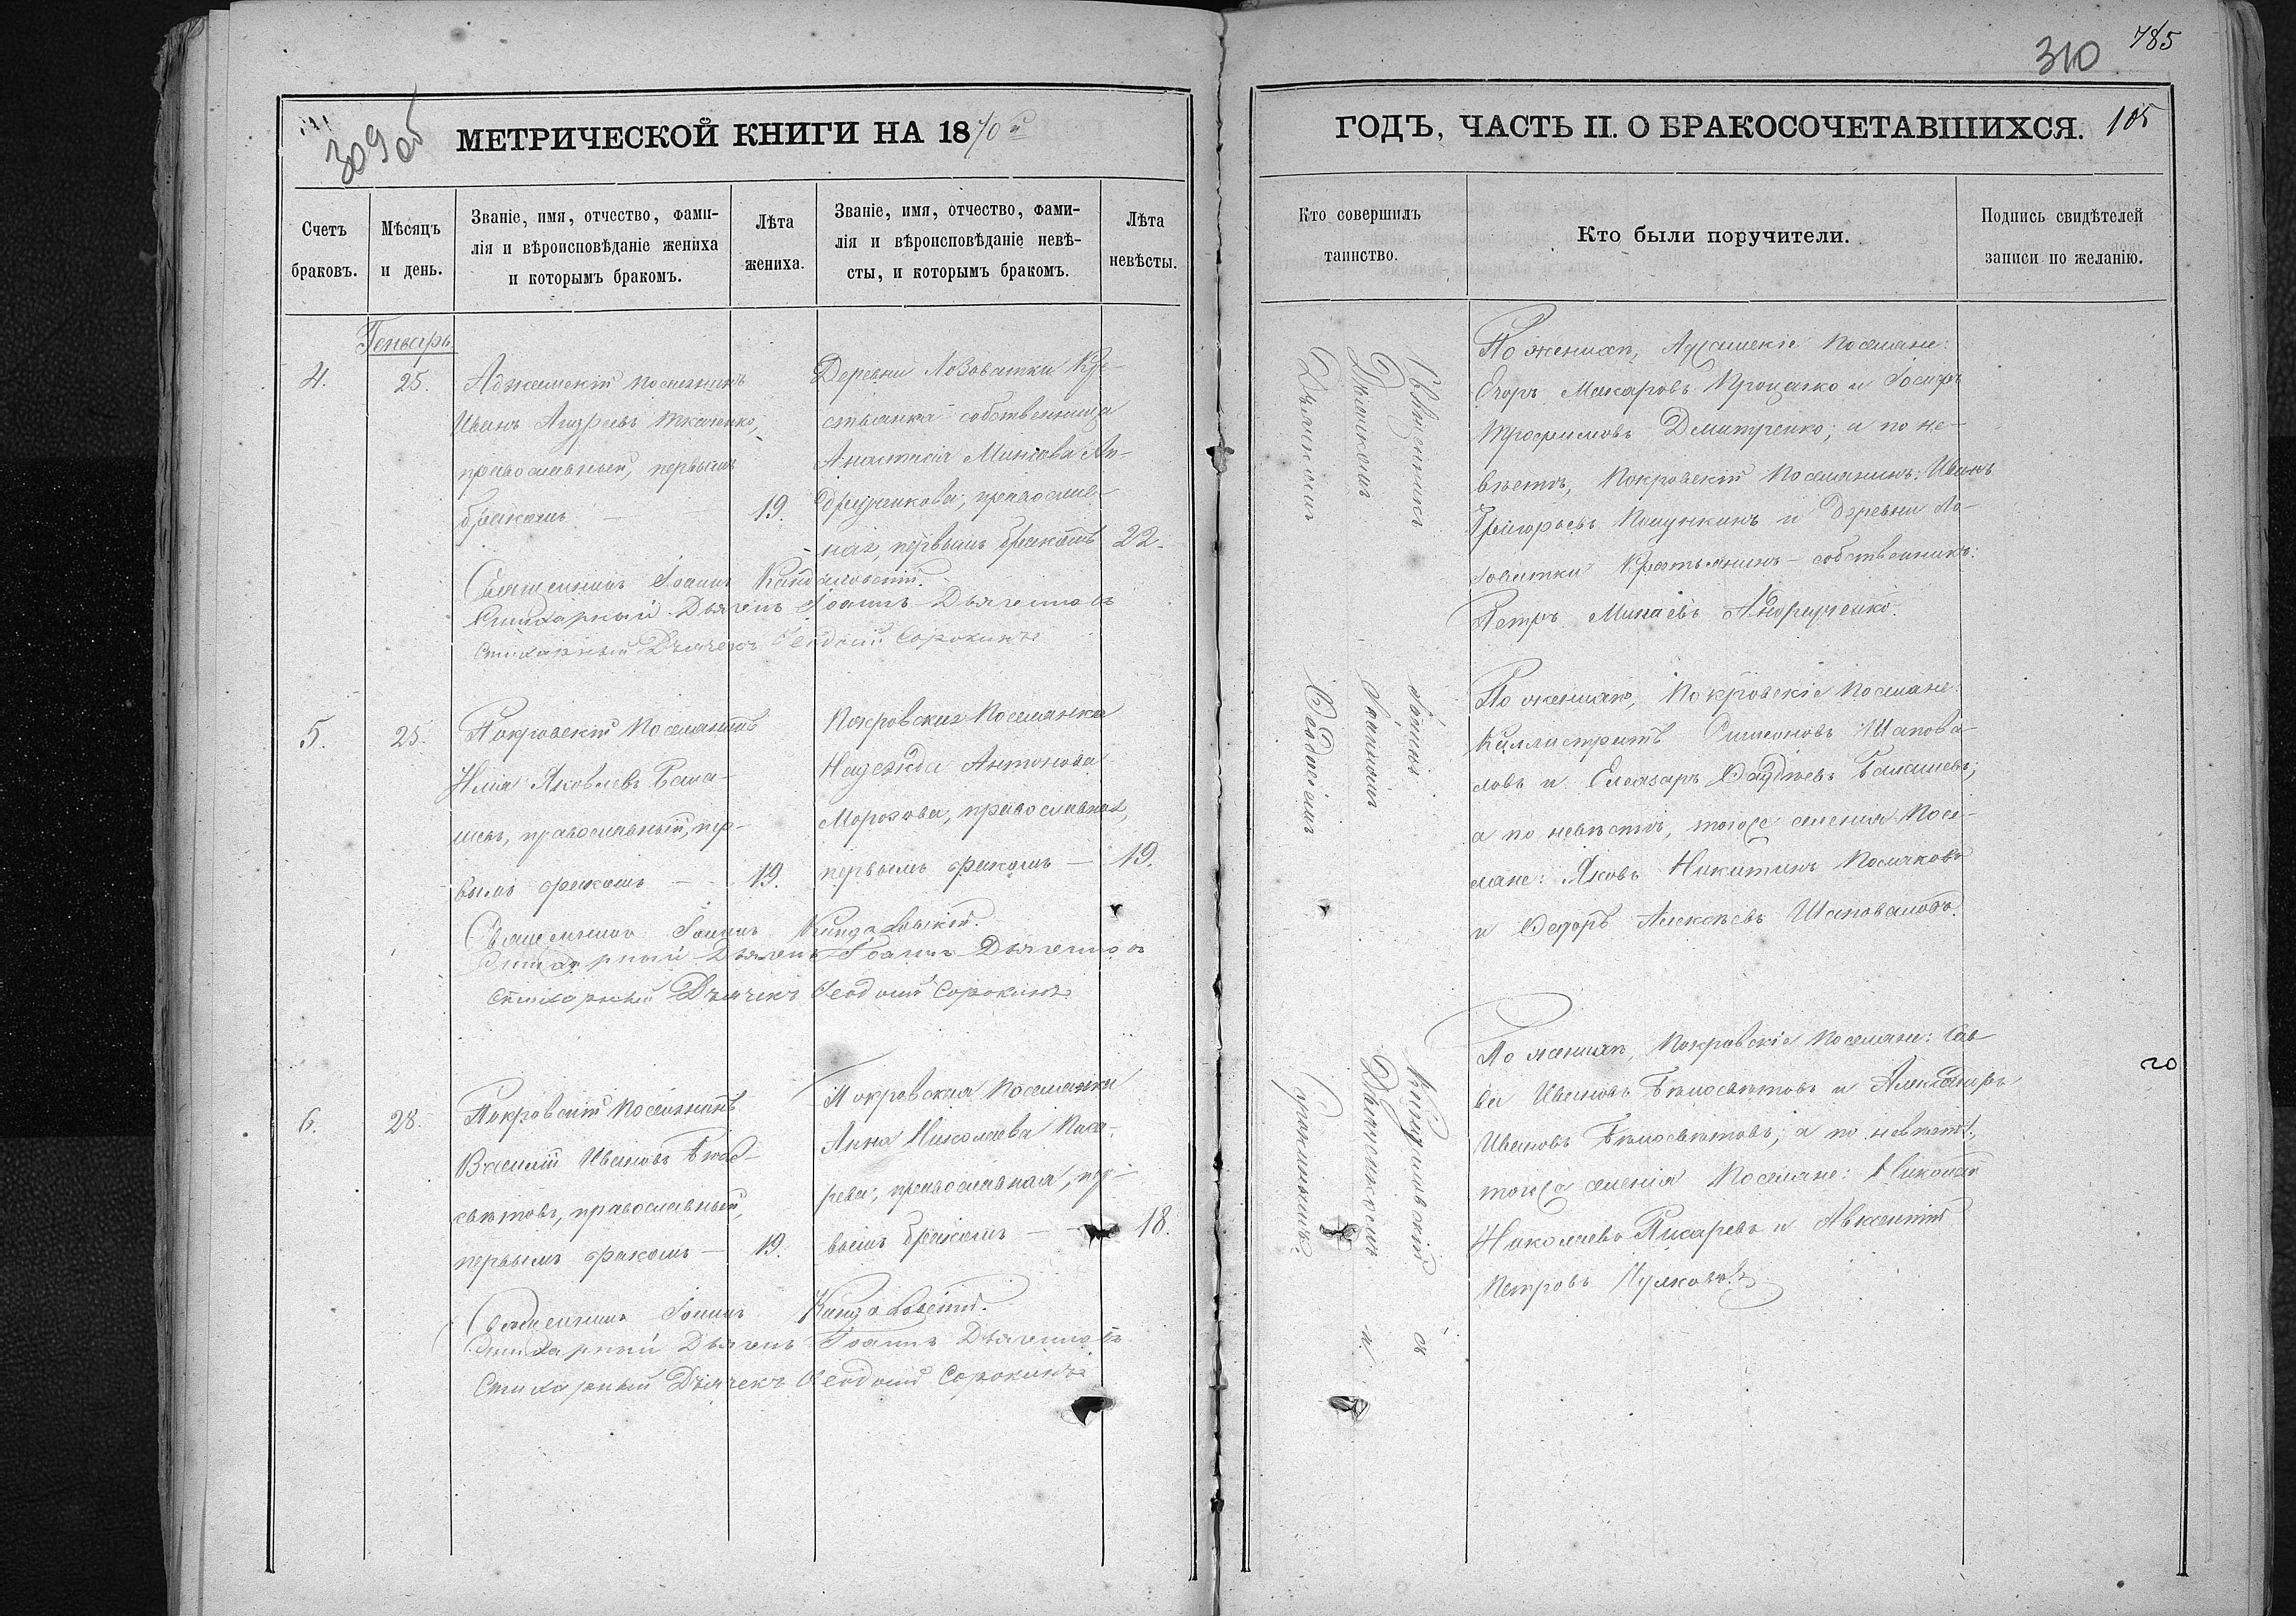 309 об
МЕТРИЧЕСКОЙ КНИГИ НА 1870й
Счетъ
браковъ.
Мѣсяцъ
и день.
Званіе, имя, отчество, фами-
лія и вѣроисповѣданіе жениха
и которымъ бракомъ.
Лѣта
жениха.
Званіе, имя, отчество, фами-
лія и вѣроисповѣданіе невѣ-
сты, и которымъ бракомъ.
Лѣта
невѣсты.
Генварь
4.
25.
Аджамскій поселянинъ
Иванъ Андреевъ Ткаченко,
православный, первымъ
бракомъ —
19.
Деревни Лозоватки Кре-
стьянка собственница
Анастасія Минаева Ан-
друщенкова, православ-
ная, первымъ бракомъ
22.
Священникъ Іоаннъ
Стихарный Дьячекъ Іоаннъ
Стихарный Дьячекъ Ѳеодосій Сорокинъ
5.
25.
Покровскій Поселянинъ
Илія Яковлевъ Бала-
шевъ, православный, пер-
вымъ бракомъ —
19.
Покровская Поселянка
Надежда Антонова
Морозова, православная,
первымъ бракомъ —
19.
Священникъ Іоаннъ
Стихарный Дьячекъ Іоаннъ
Стихарный Дьячекъ Ѳеодосій Сорокинъ
6.
28.
Покровскій Поселянинъ
Василій Ивановъ Бѣло-
свѣтовъ, православный,
первымъ бракомъ —
19.
Покровская Поселянка
Анна Николаева Писа-
рева, православная, пер-
вымъ бракомъ —
18.
Священникъ Іоаннъ
Стихарный Дьячекъ Іоаннъ
Стихарный Дьячекъ Ѳеодосій Сорокинъ
310
785
ГОДЪ, ЧАСТЬ II. О БРАКОСОЧЕТАВШИХСЯ.
105
Кто совершилъ
таинство.
Кто были поручители.
Подпись свидѣтелей
записи по желанію.
Священникъ Іоаннъ съ
Дьячкомъ Іоанномъ и
Дьячкомъ Ѳеодосіемъ Сорокинымъ.
По женихѣ, Аджамскіе поселяне:
Егоръ Макаровъ Процанко и Іосифъ
Трофимовъ Дмитренко; и по не-
вѣстѣ, Покровскій Поселянинъ: Иванъ
Григорьевъ и Деревни Ло-
зоватки Крестьянинъ-собственникъ:
Петръ Минаевъ Андрущенко.
По женихѣ, Покровскіе поселяне:
Каллистратъ Симеоновъ Шапова-
ловъ и Елеазаръ Балашевъ;
а по невѣстѣ, тогоже селенія Посе-
ляне: Яковъ Никитинъ Поляковъ
и Ѳедоръ Алексѣевъ Шаповаловъ.
По женихѣ, Покровскіе поселяне: Сав-
ва Ивановъ Бѣлосвѣтовъ и Александръ
Ивановъ Бѣлосвѣтовъ; а по невѣстѣ,
тогоже селенія Поселяне: Николай
Николаевъ Писаревъ и Авксентій
Петровъ